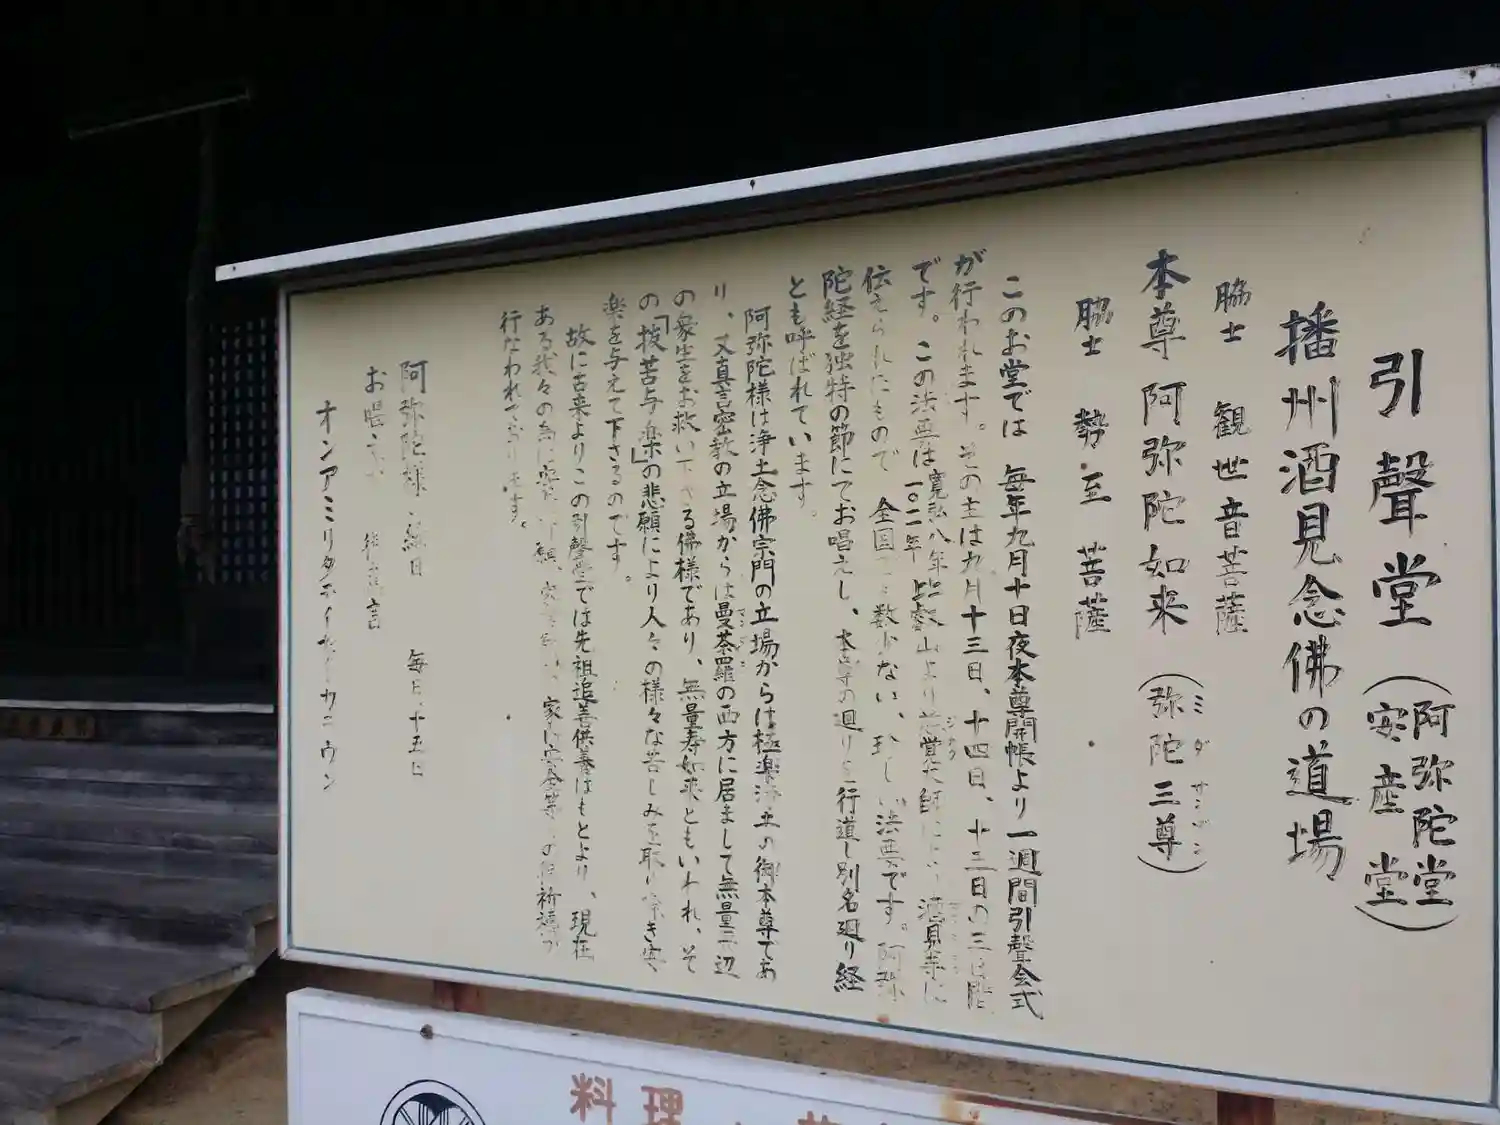 引聲堂(阿弥陀堂 安産堂)
播州酒見念佛の道場
脇士 観世音菩薩
本尊 阿弥陀如来(弥陀三尊)
ミダサンゾン
脇士 勢至菩薩
このお堂では 毎年九月十日夜本尊開帳より一週間引聲会式
が行われます。その主は九月十三日、十四日、十三日の三日
です。この法要は寛弘八年 一〇一二年 比叡山より慈覚大師 酒見寺に
ジカク
伝えられたもので 全国 数少ない、珍しい法要です。阿弥
陀経を独特の節にてお唱えし、本尊の廻りを行道し別名廻り経
とも呼ばれています。
阿弥陀様は浄土念佛宗門の立場からは極楽浄土の御本尊であ
り、又真言密教の立場からは曼荼羅の西方に居まして無量 辺
マンダラ
の衆生をお救い下さる佛様であり、無量寿如来ともいわれ、そ
の「抜苦与楽」の悲願により人々の様々な苦しみを取り除き安
楽を与えて下さるのです。
故に古来よりこの引聲堂では先祖追善供養はもとより、現在
ある我々の為に 願 家内安全等 御祈祷が
行なわれております。
阿弥陀様 縁日 毎月、十五日
お唱え 言
オンアミリタテイセイカラウン
料理